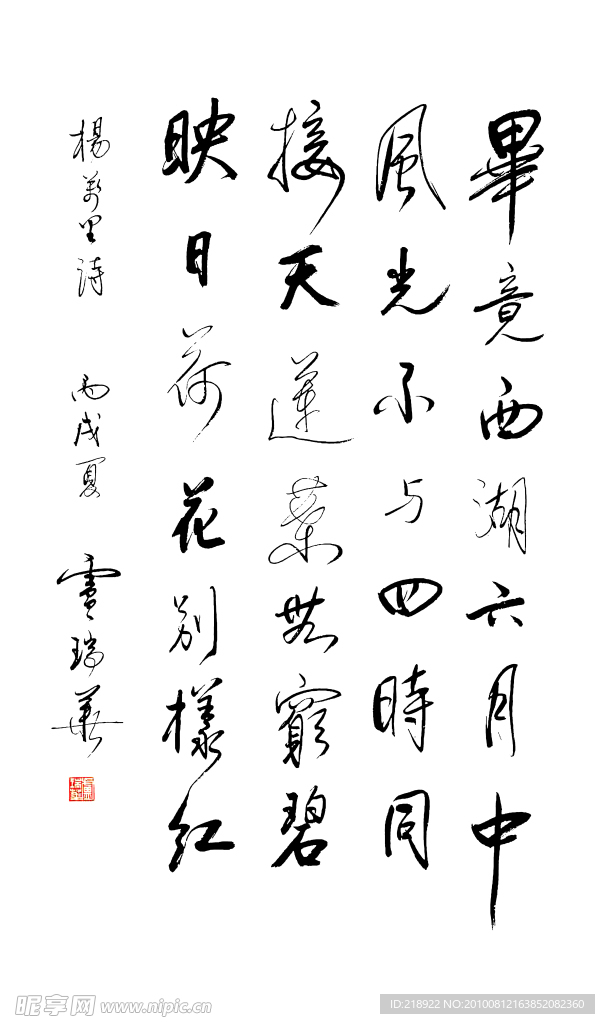 畢竟西湖六月中
風光不与四時同
接天蓮葉無窮碧
映日荷花别樣紅
楊萬里詩 丙戌夏 雲瑞華
昵享网 www.nipic.cn
ID:218922 NO:20100812163852082360